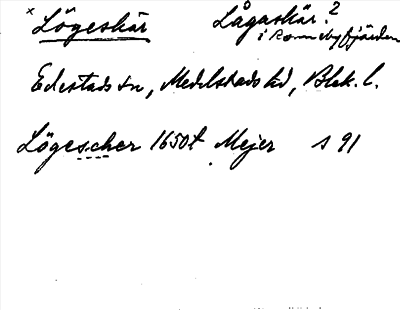 × Lögeskär Lågaskär? 
i Ronnebyfjärden
Edestads sn, Medelstads hd, Blek. l.
Lögescher 1650t Mejer s 91